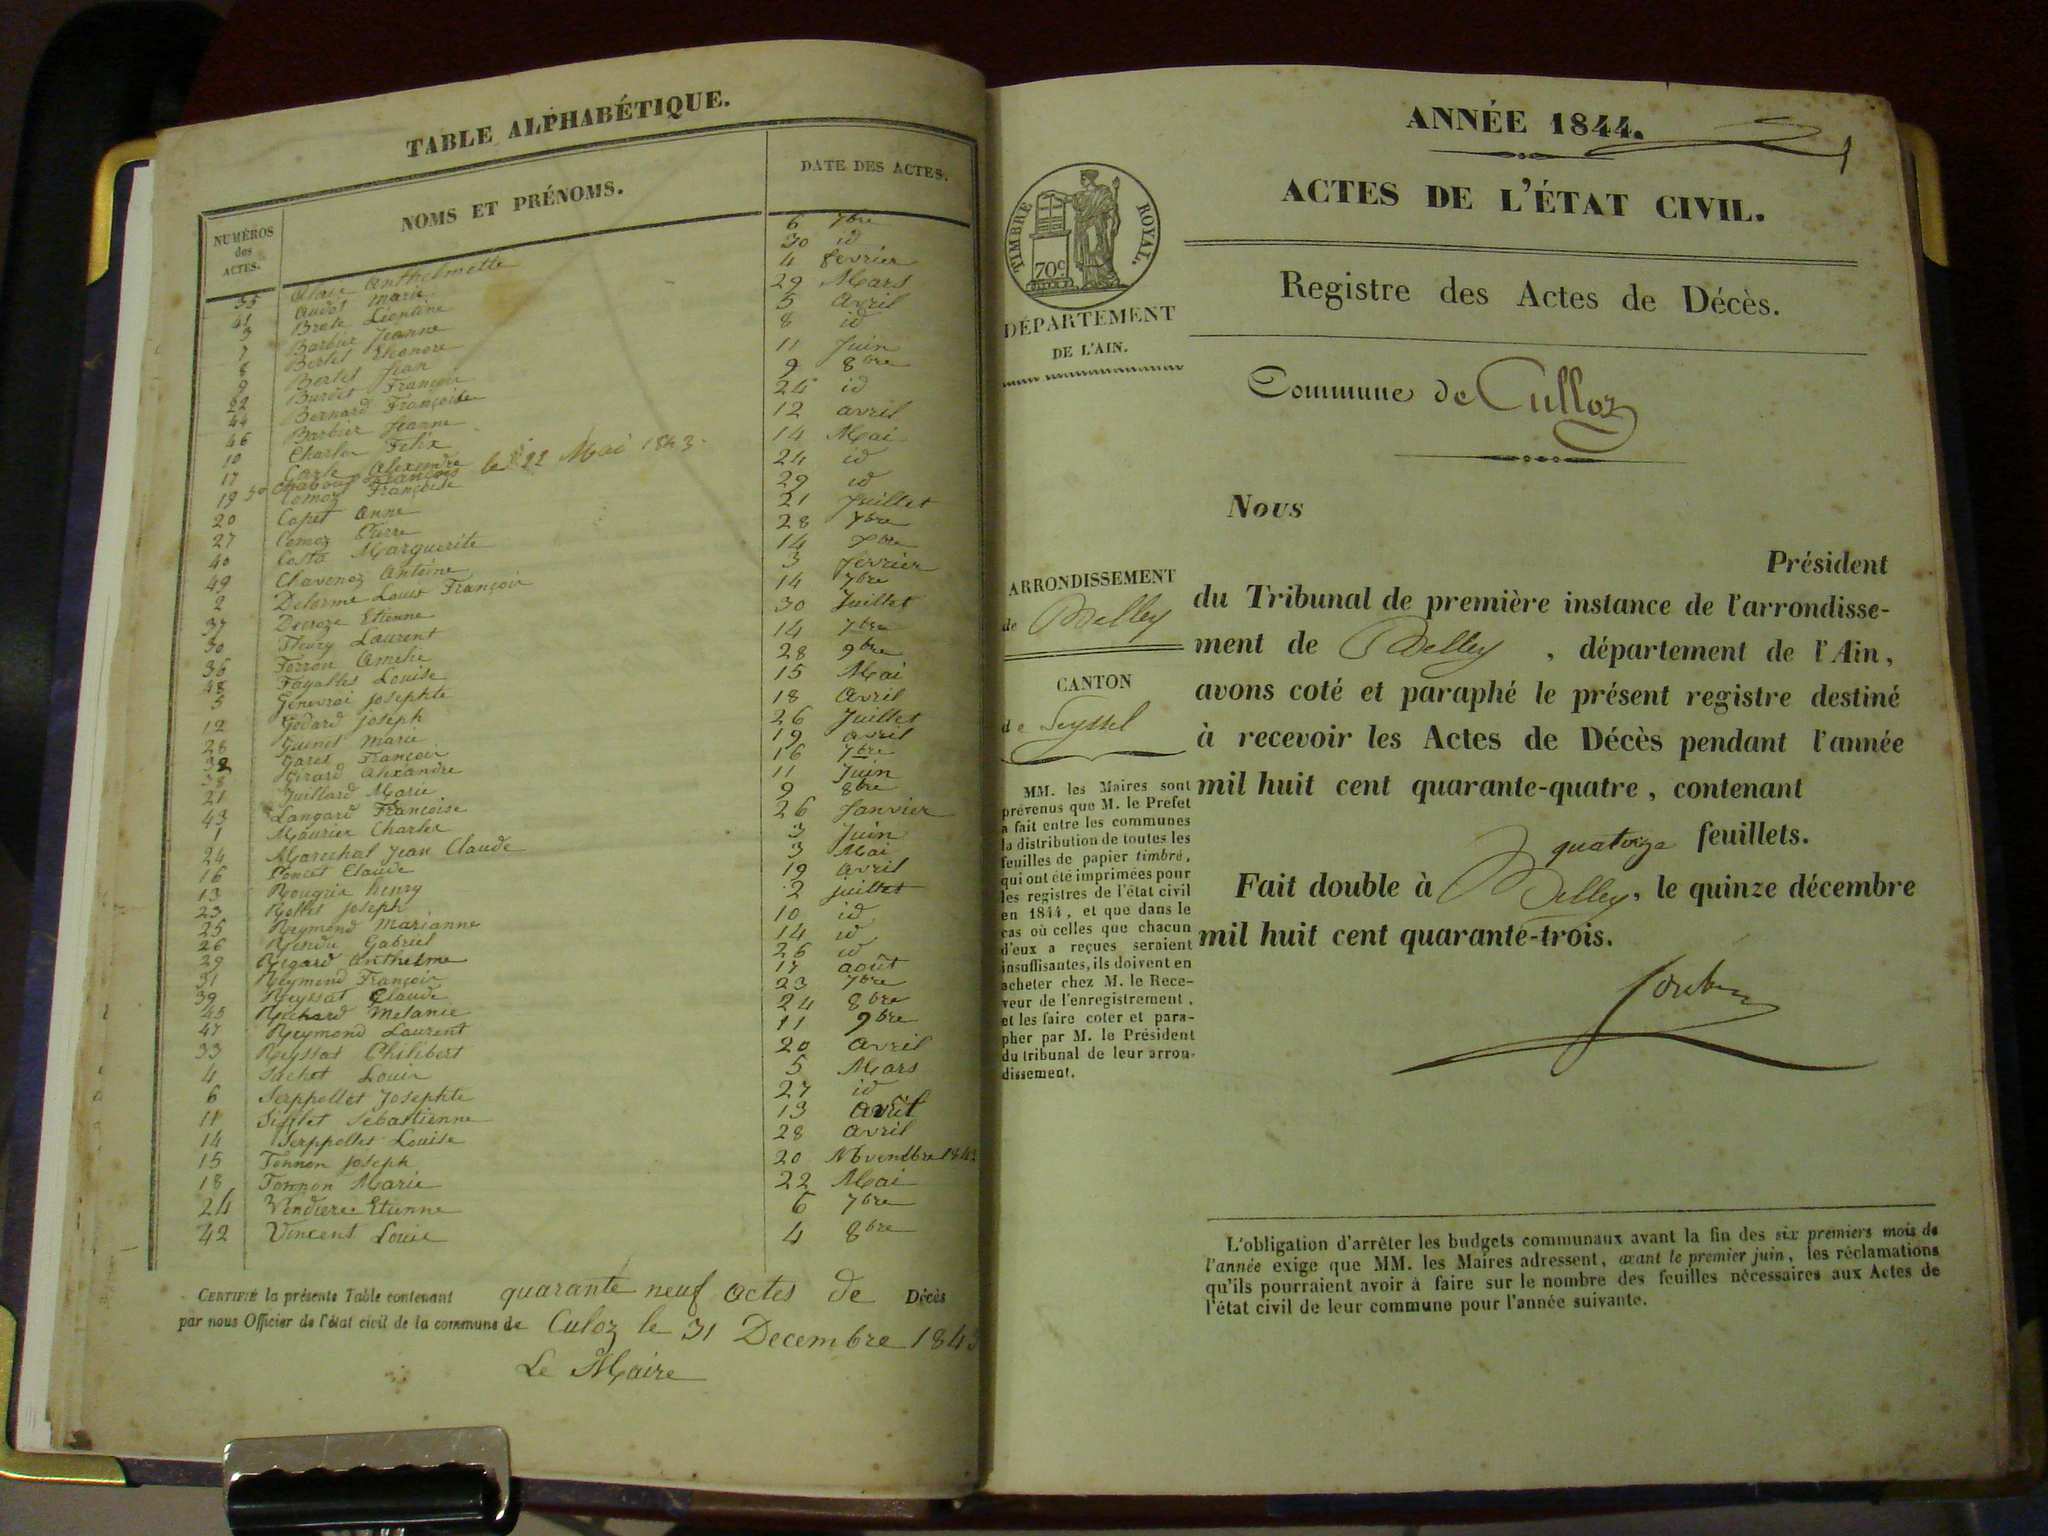 TABLE ALPHABÉTIQUE.
NUMÉROS des ACTES.
NOMS ET PRÉNOMS.
DATE DES ACTES.
35 Anthelmette 6 7bre
41 Audot Marie 30 id
3 Leontine 4 fevrier
7 Barbier Jeanne 29 Mars
8 Bertet Eleonore 5 avril
9 Bertet Jean 8 id
22 Burdet François 11 Juin
44 Bernard Françoise 9 8bre
46 Barbier Jeanne 24 id
10 Charles Felix 12 avril
17 Carle Alexandre 14 Mai
50 François le 22 Mai 1843
19 Comoz Françoise 24 id
20 Capet Anne 29 id
27 Comoz Pierre 21 Juillet
40 Costa Marguerite 28 7bre
49 Chavenoz Antoine 14
2 Delorme Louis François 3 fevrier
37 Decroze Etienne 14 7bre
30 Fleury Laurent 30 Juillet
36 Ferrou Amelie 14 7bre
48 Louise 28 9bre
5 Genevrai Josephte 15 Mai
12 Godard Joseph 18 avril
28 Guenet Marie 26 Juillet
32 Garet François 19 avril
38 Girard Alexandre 16 7bre
21 Juillard Marie 11 Juin
43 Langard Françoise 9 8bre
1 Maurier Charles 26 Janvier
24 Marechal Jean Claude 3 Juin
16 Poncet Claude 3 Mai
13 Rougrin henry 19 avril
23 Rollet Joseph 2 juillet
25 Reymond Marianne 10 id
26 Rendu Gabriel 14 id
29 Rigard Anthelme 26 id
31 Reymond François 17 août
39 Reyssat Claude 23 7bre
45 Richard Melanie 24 8bre
47 Reymond Laurent 11 9bre
33 Reyssat Philibert 20 avril
4 Sachet Louis 5 Mars
6 Serppollet Josephte 27 id
11 Sebastienne 13 Avril
14 Serppollet Louise 28 avril
15 Tonnon Joseph 20 Novembre
18 Tonnon Marie 22 Mai
24 Vendiere Etienne 6 7bre
42 Vincent Louis 4 8bre
CERTIFIÉ la présente Table contenant quarante neuf actes de Décès
par nous Officier de l'état civil de la commune de Culoz le 31 Decembre 1843
Le Maire
ANNÉE 1844.
1
ACTES DE L'ÉTAT CIVIL.
TIMBRE ROYAL.
70c
DÉPARTEMENT
DE L'AIN.
Registre des Actes de Décès.
Commune de Culloz
ARRONDISSEMENT
de Belley
CANTON
de Seyssel
MM. les Maires sont
prévenus que M. le Prefet
a fait entre les communes
la distribution de toutes les
feuilles de papier timbré,
qui ont été imprimées pour
les registres de l'état civil
en 1844, et que dans le
cas où celles que chacun
d'eux a reçues seraient
insuffisantes, ils doivent en
acheter chez M. le Rece-
veur de l'enregistrement,
et les faire coter et para-
pher par M. le Président
du tribunal de leur arron-
dissement.
Nous
Président
du Tribunal de première instance de l'arrondisse-
ment de Belley, département de l'Ain,
avons coté et paraphé le présent registre destiné
à recevoir les Actes de Décès pendant l'année
mil huit cent quarante-quatre, contenant
quatorze feuillets.
Fait double à Belley, le quinze décembre
mil huit cent quarante-trois.
L'obligation d'arrêter les budgets communaux avant la fin des six premiers mois de
l'année exige que MM. les Maires adressent, avant le premier juin, les réclamations
qu'ils pourraient avoir à faire sur le nombre des feuilles nécessaires aux Actes de
l'état civil de leur commune pour l'année suivante.